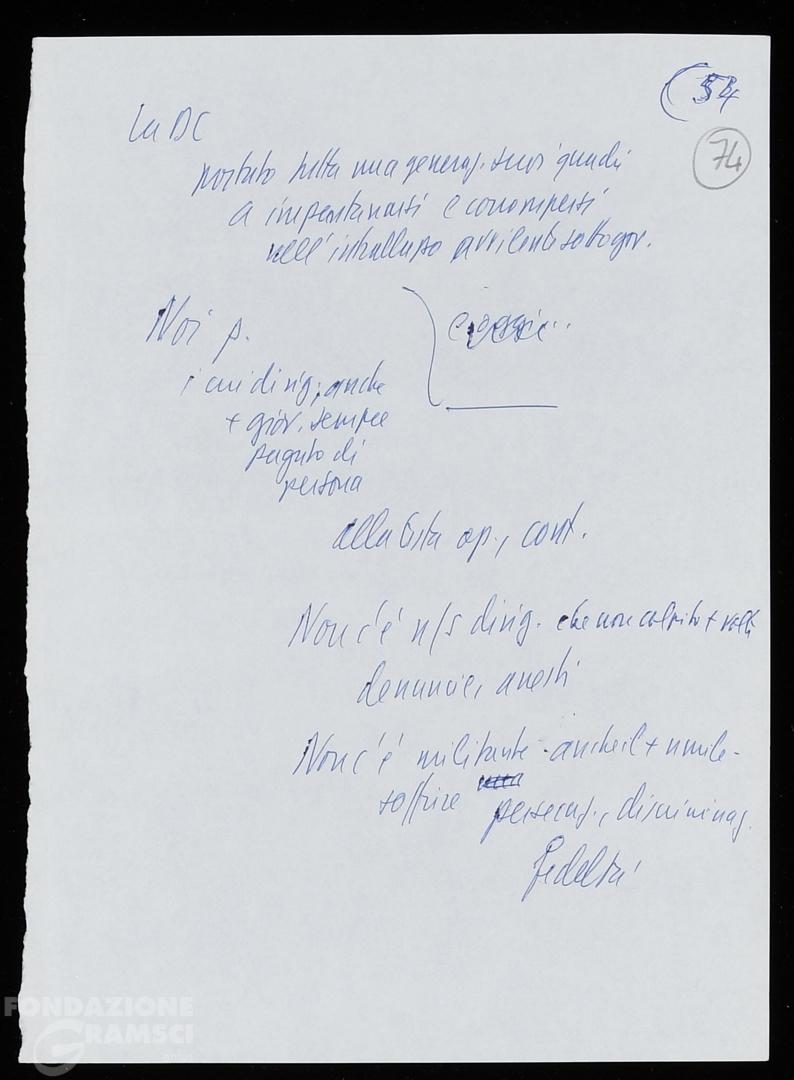 54
74
La DC
portato tutta una generaz. suoi quadri
a impantanarsi e corrompersi
nell'intrallazzo avvilente sottogov.
Noi p.
i cui dirig., anche
+ giov. sempre
pagato di
persona
alla testa op., cont.
Non c'è n/s dirig. che non colpito + volte
denuncie, arresti
Non c'è militante - anche il + umile -
soffrire persecuz., discriminaz.
Fedeltà
FONDAZIONE
GRAMSCI
onlus